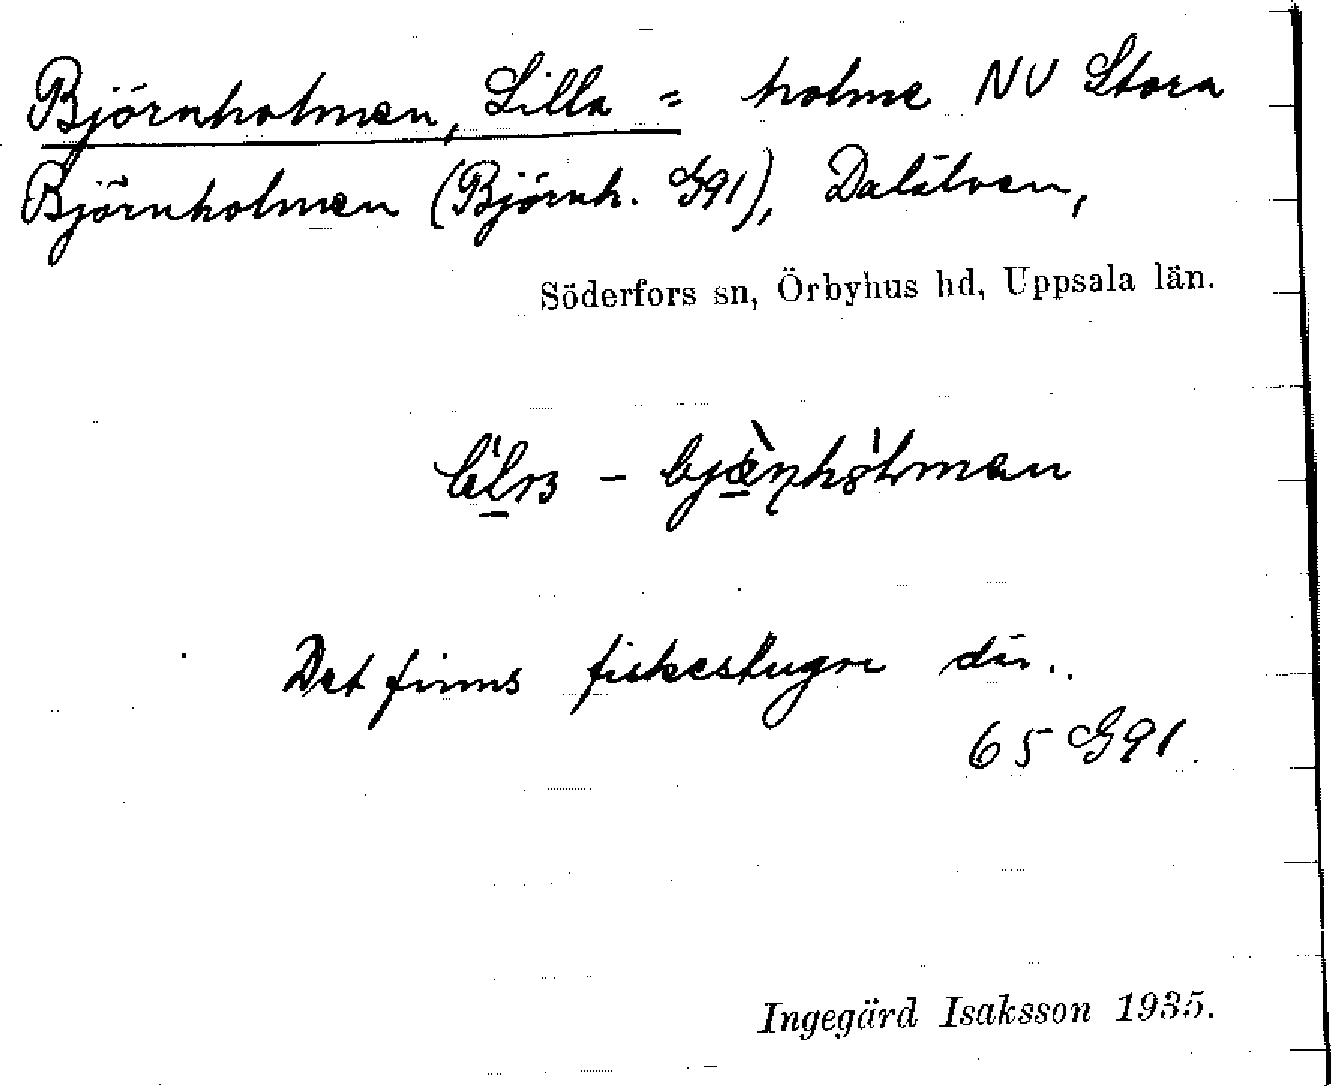 Björnholmen, Lilla = holme NV Stora
Björnholmen (Björnh. G91), Dalälven,
Söderfors sn, Örbyhus hd, Uppsala län.
Det finns fiskestugor där.
65 G91.
Ingegärd Isaksson 1935.